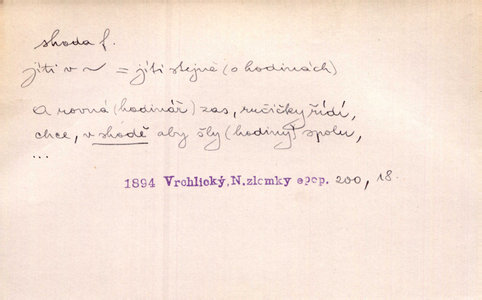 shoda f.
jíti v ~ = jíti stejně (o hodinách)
A rovná (hodinář) zas, ručičky řídí,
chce, v shodě aby šly (hodiny) spolu,
...
1894 Vrchlický, N. zlomky epop. 200, 18.